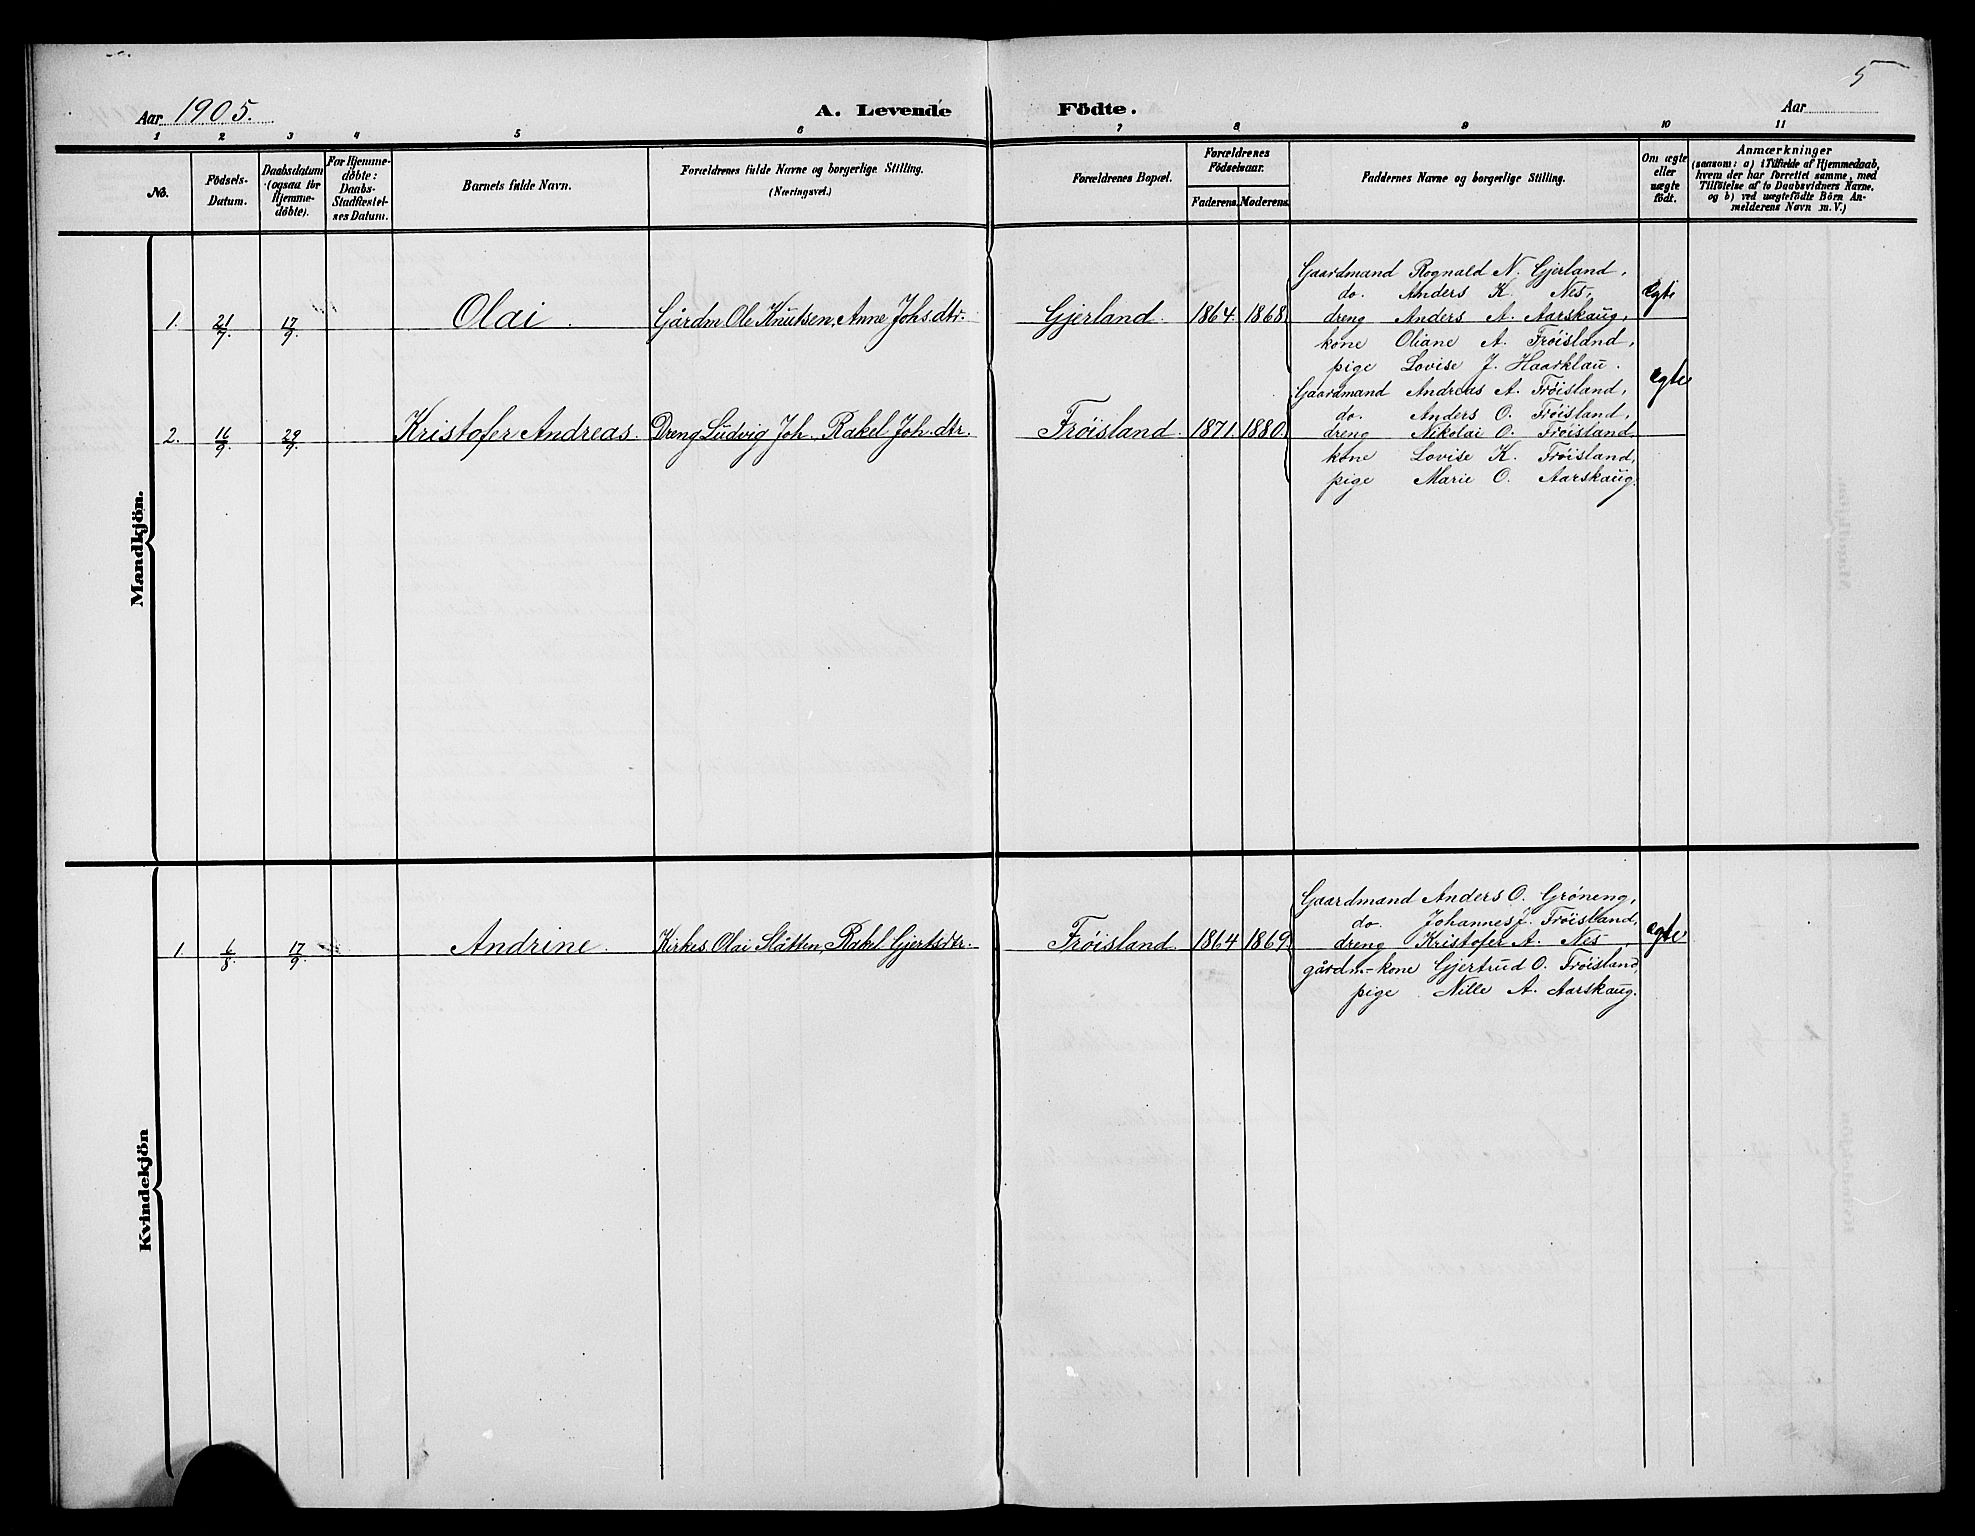 5
Aar 1905. A. Levende Födte. Aar
1 2 3 4 5 6 7 8 9 10 11
No.
Födsels-
Datum.
Daabsdatum
(ogsaa for
Hjemme-
döbte).
For Hjemme-
döbte:
Daabs-
Stadfæstel-
ses Datum.
Barnets fulde Navn.
Forældrenes fulde Navne og borgerlige Stilling.
(Næringsvei.)
Forældrenes Bopæl.
Forældrenes
Födselsaar.
Faderens. Moderens.
Faddernes Navne og borgerlige Stilling.
Om ægte
eller
uægte
födt.
Anmærkninger
(saasom: a) i Tilfælde af Hjemmedaab,
hvem der har forrettet samme, med
Tilföielse af to Daabsvidners Navne,
og b) ved uægtefödte Börn An-
melderens Navn m. V.)
Mandkjön.
1. 21/7 17/9 Olai. Gårdm Ole Knutsen, Anne Johsdtr. Gjerland. 1864. 1868. ægte
Gaardmand Rognald N. Gjerland,
do. Anders K. Nes,
dreng Anders A. Aarskaug,
kone Oliane A. Frøisland,
pige Lovise J. Haarklau.
2. 16/9 29/9 Kristofer Andreas. Dreng Ludvig Joh, Rakel Joh.dtr. Frøisland. 1871. 1880. ægte
Gaardmand Andreas A. Frøisland,
do. Anders O. Frøisland,
dreng Nikolai O. Frøisland,
kone Lovise K. Frøisland,
pige Marie O. Aarskaug.
Kvindekjön
1. 6/8 17/9 Andrine. Kirkes. Olai Slåtten, Rakel Gjertsdtr. Frøisland 1864 1869 ægte
Gaardmand Anders O. Grøneng,
do. Johannes J. Frøisland,
dreng Kristofer A. Nes,
gårdm-kone Gjertrud O. Frøisland,
pige Nille A. Aarskaug.